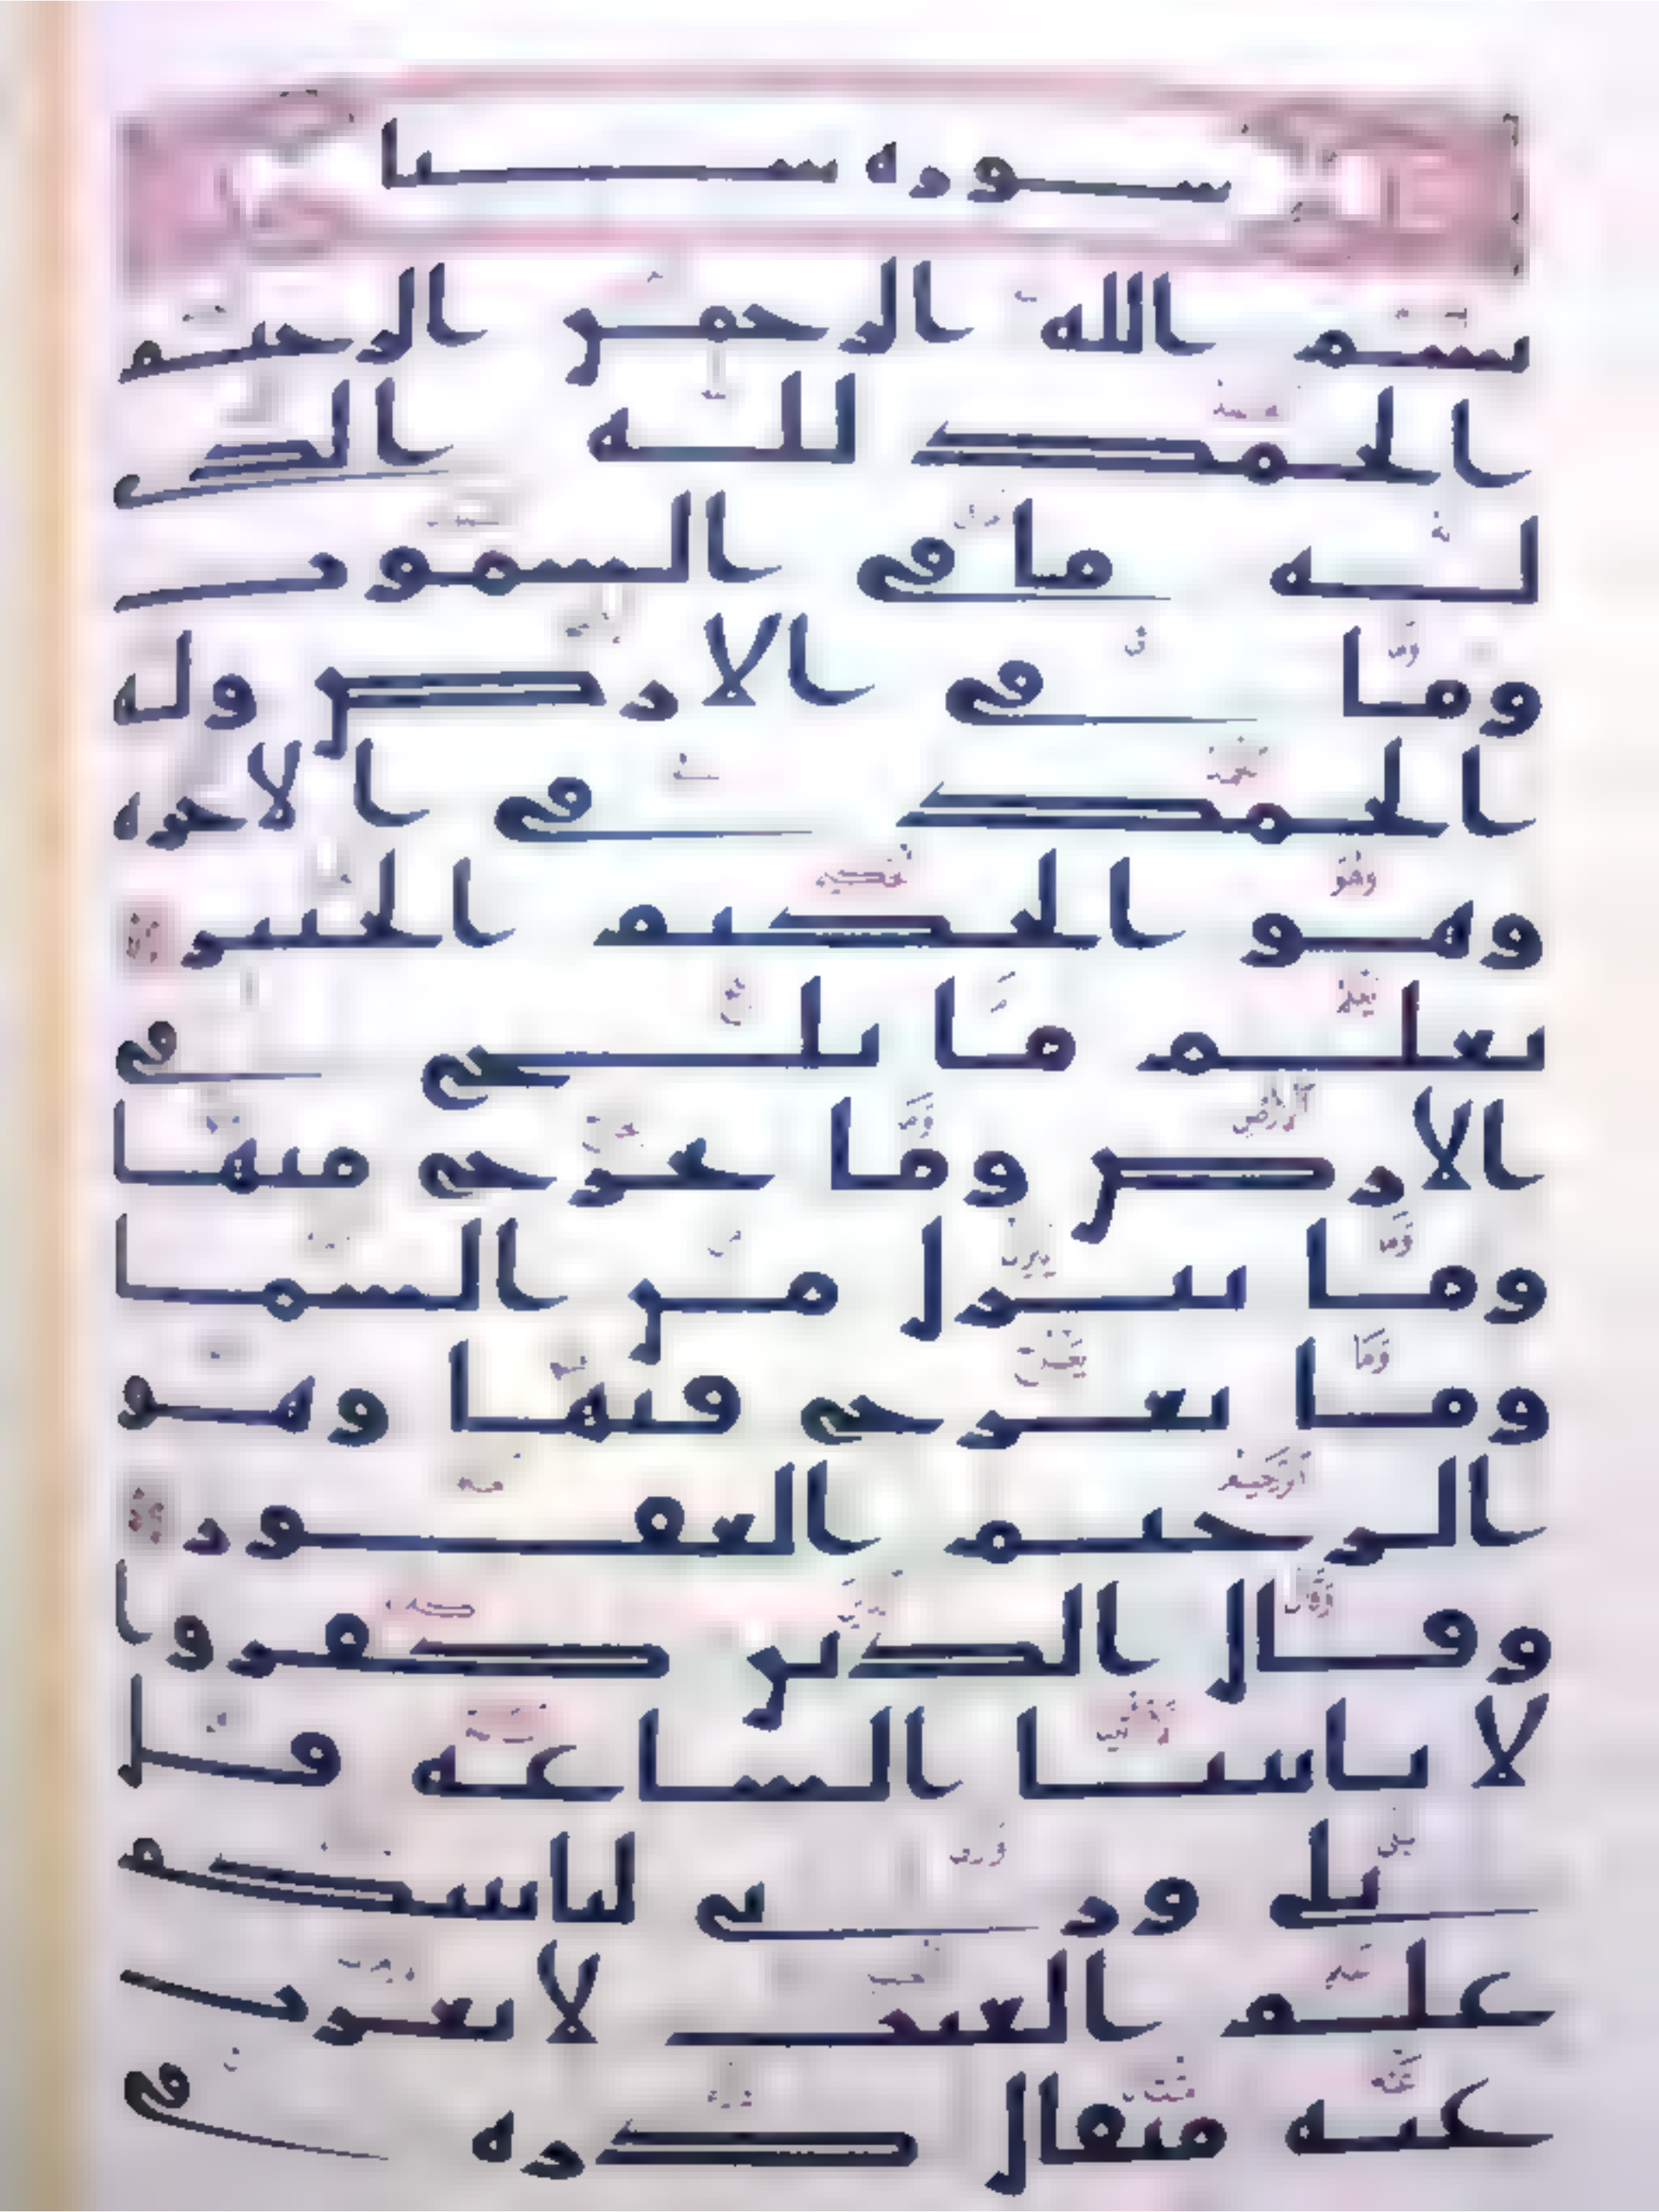 سورة سبا
بسم الله الرحمن الرحيم
الحمد لله الذي
له ما في السموت
وما في الارض وله
الحمد في الاخرة
وهو الحكيم الخبير
يعلم ما يلج في
الارض وما يخرج منها
وما ينزل من السما
وما يعرج فيها وهو
الرحيم الغفور
وقال الذين كفروا
لا تاتينا الساعة قل
بلى وربي لتاتينكم
علم الغيب لا يعزب
عنه مثقال ذرة في